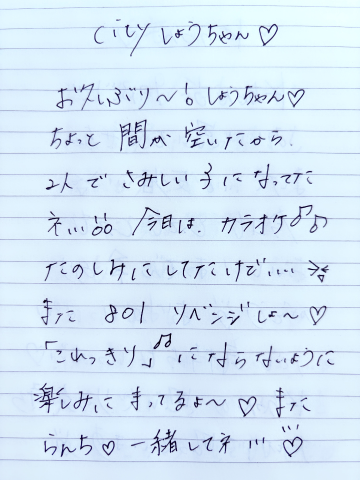 city しょうちゃん♡
お久しぶり〜!。しょうちゃん♡
ちょっと 間が 空いたから、
2人で さみしい子になってた
ネ… 今日は、カラオケ♪♪
たのしみにしてたけど…
また 801 リベンジしよ〜♡
「これっきり」♫にならないように
楽しみに まってるょ〜♡ また
らんち♡ 一緒してネ…♡